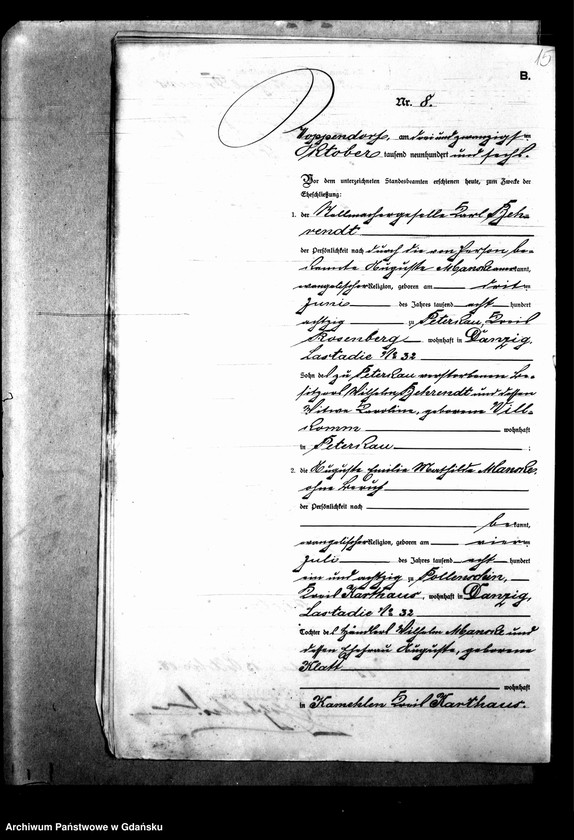 15
B.
Nr. 8.
Zoppendorf, am drei und zwanzigst=
Oktober tausend neunhundert und sechs.
Vor dem unterzeichneten Standesbeamten erschienen heute, zum Zwecke der
Eheschließung:
1. der Stellmachergeselle Karl Beh=
rendt
der Persönlichkeit nach durch die von Person be=
kannte Auguste Manske anerkannt,
evangelischer Religion, geboren am dritten
Juni des Jahres tausend acht hundert
achtzig zu Peterkau, Kreis
Rosenberg wohnhaft in Danzig,
Lastadie № 32
Sohn des zu Peterkau verstorbenen Be=
sitzers Wilhelm Behrendt und dessen
Witwe Karoline, geborene Will=
komm wohnhaft
in Peterkau ;
2. die Auguste Emilie Mathilde Manske,
ohne Beruf
der Persönlichkeit nach
bekannt,
evangelischer Religion, geboren am vierten
Juli des Jahres tausend acht hundert
ein und achtzig zu Pollenschin,
Kreis Karthaus, wohnhaft in Danzig,
Lastadie № 32
Tochter des Wilhelm Manske und
dessen Ehefrau Auguste, geborene
Klatt
wohnhaft
in Kamehlen Kreis Karthaus.
Archiwum Państwowe w Gdańsku